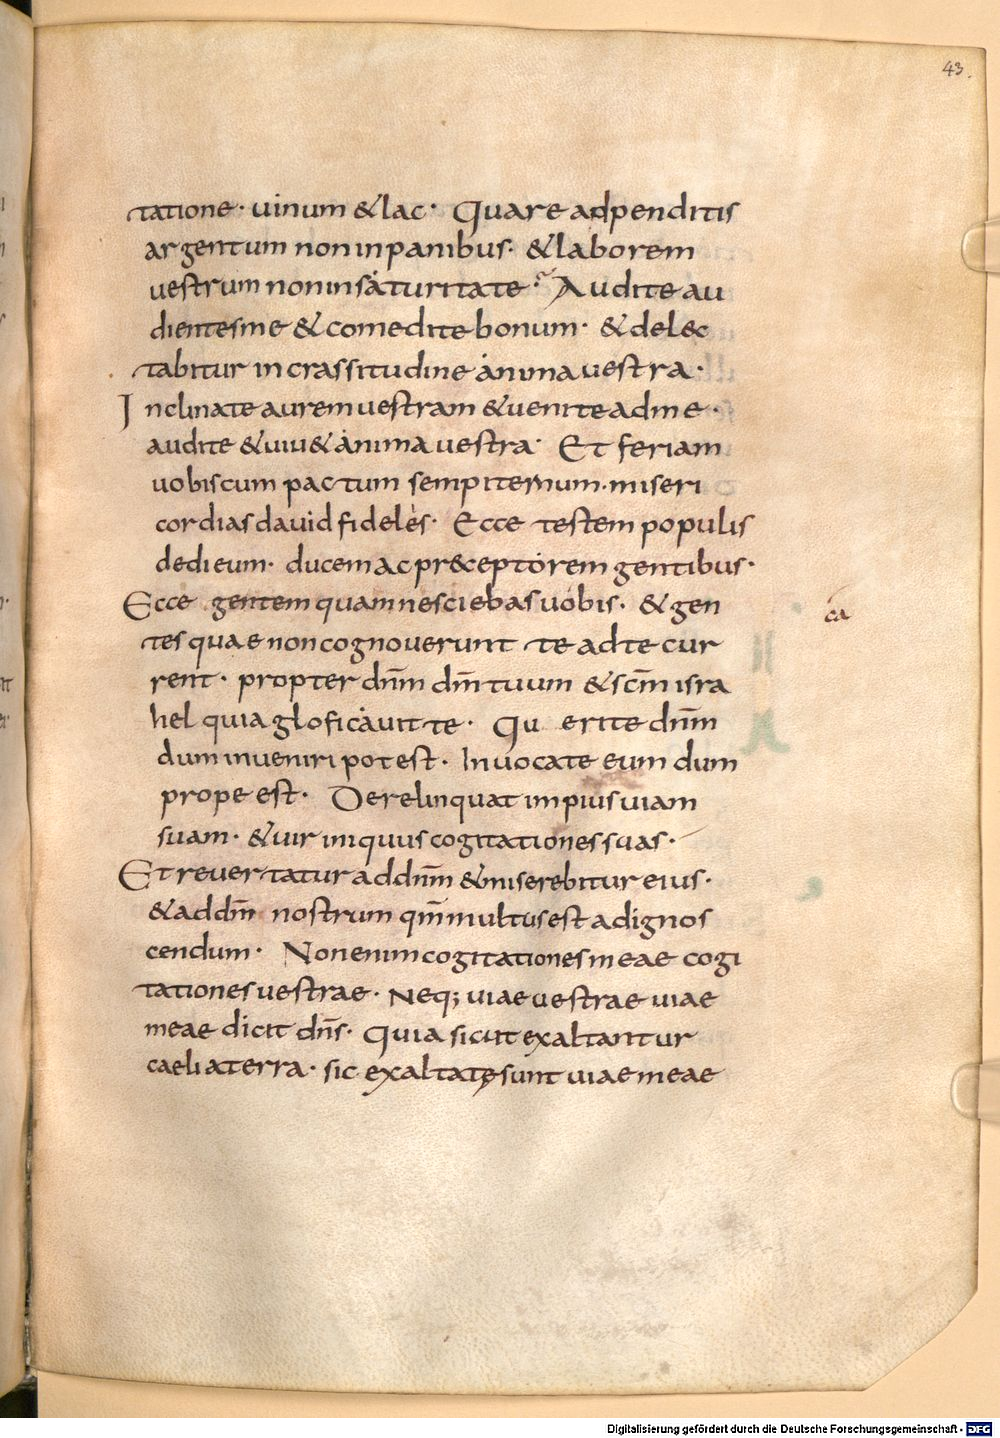 43.
tatione· uinum & lac· Quare adpenditis
argentum non in panibus· & laborem
uestrum non in saturitate· Audite au
dientes me & comedite bonum· & delec
tabitur in crassitudine anima uestra·
Inclinate aurem uestram & uenite ad me·
audite & uiu& anima uestra· Et feriam
uobiscum pactum sempiternum· miseri
cordias dauid fideles· Ecce testem populis
dedi eum· ducem ac pr&ceptorem gentibus·
Ecce gentem quam nesciebas uobis· & gen
ca
tes quae non cognouerunt te ad te cur
rent· propter dn̅m dm̅ tuum & scm̅ isra
hel quia gloficauit te· Qu erite dn̅m
dum inueniri potest· Inuocate eum dum
prope est· Derelinquat impius uiam
suam· & uir iniquus cogitationes suas·
Et reuertatur ad dn̅m & miserebitur eius·
& ad dm̅ nostrum qm̅ multus est ad ignos
cendum· Non enim cogitationes meae cogi
tationes uestrae· Neq; uiae uestrae uiae
meae dicit dn̅s· Quia sicut exaltantur
caeli a terra· sic exaltatę sunt uiae meae
Digitalisierung gefördert durch die Deutsche Forschungsgemeinschaft - DFG